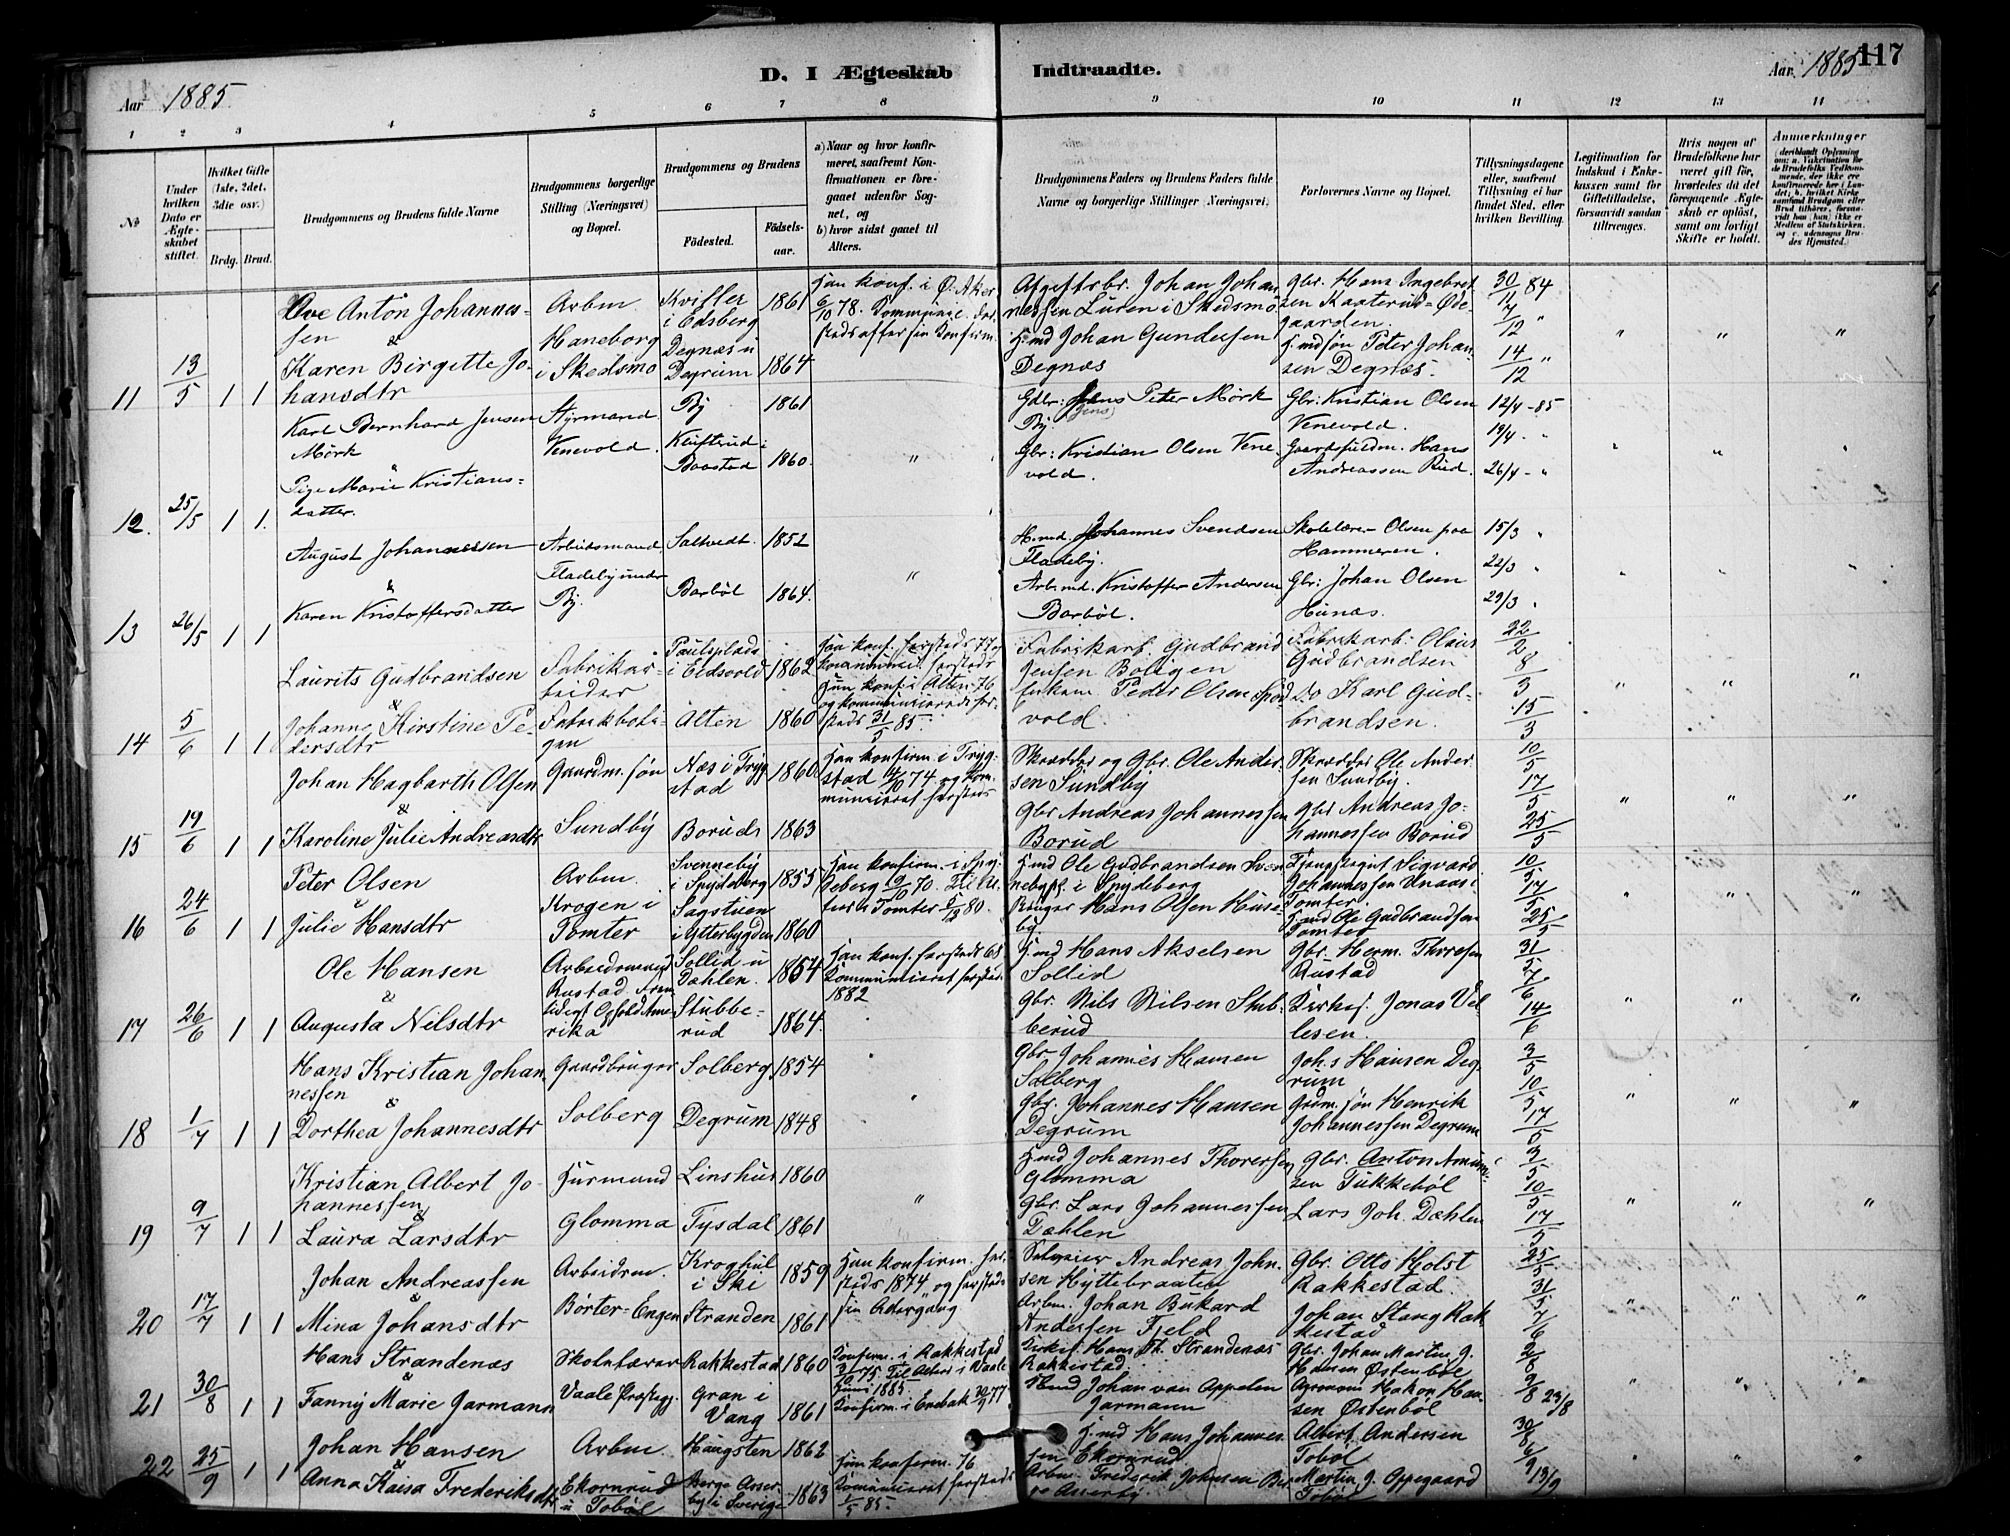 117
D. I Ægteskab Indtraadte.
Aar 1885
Aar 1885
1 2 3 4 5 6 7 8 9 10 11 12 13 14
No
Under hvilken Dato er Ægteskabet stiftet.
Hvilket Gifte (1ste, 2det, 3die osv.)
Brdg. Brud.
Brudgommens og Brudens fulde Navne
Brudgommens borgerlige Stilling (Næringsvei) og Bopæl.
Brudgommens og Brudens
Födested.
Födselsaar.
a) Naar og hvor konfirmeret, saafremt Konfirmationen er foregaaet udenfor Sognet, og
b) hvor sidst gaaet til Alters.
Brudgommens Faders og Brudens Faders fulde Navne og borgerlige Stillinger (Næringsvei)
Forlovernes Navne og Bopæl.
Tillysningsdagene eller, saafremt Tillysning ei har fundet Sted, efter hvilken Bevilling.
Legitimation for Indskud i Enkekassen samt for Giftetilladelse, forsaavidt saadan tiltrænges.
Hvis nogen af Brudefolkene har været gift för, hvorledes da det foregaaende Ægteskab er oplöst, samt om lovligt Skifte er holdt.
Anmærkninger
11 13/5 1 1
Ove Anton Johannessen
&
Karen Birgitte Johansdtr
Arbm.
Haneborg
i Skedsmo
Kvifler
i Edsberg 1861
Degnæs u
Degrum 1864
Han konf. i Ø. Aker
6/10 78.
Afgiftsbr. Johan Johannessen Luren i Skedsmo
H.md Johan Gundersen
Degnæs
Gbr. Hans Ingebretsen Kaaterud-Ødegaarden.
H.mdsøn Peter Johansen Degnæs.
30/11 84
7/12 "
14/12 "
12 25/5 1 1
Karl Bernhard Jensen
Mørk
&
Pige Marie Kristiansdatter.
Styrmand
Venevold.
By 1861
Baastad 1860.
Gbr: Jens Peter Mörk
By.
Gbr: Kristian Olsen Venevold.
Gbr: Kristian Olsen
Venevold.
Gaardsfuldm. Hans
Andreassen Rud.
12/4 - 85
19/4 - "
26/4 - "
13 26/5 1 1
August Johannessen
&
Karen Kristoffersdatter
Arbeidsmand
Fladeby under
By.
Saltvedt. 1852
Barböl 1864.
H.md. Johannes Svendsen
Fladeby.
Arb.md. Kristoffer Andersen
Barböl.
Skolelærer Olsen paa
Hammeren.
Gbr: Johan Olsen
Hunæs.
15/3 "
22/3 "
29/3 "
14 5/6 1 1
Laurits Gudbrandsen
&
Johanne Kirstine Pedersdtr
Fabrikarbeider
Fabrikboligen
Paulsplads
i Eidsvold 1862
Alten 1860
Han konf. forsteds 77 og
kommuniceret forsteds
Hun konf. i Alten 76
og kommunicerede forsteds 31/5 85.
Fabrikarb. Gudbrand
Jensen Boligen
Peder Olsen
Fabrikarb. Olaus
Gudbrandsen
Do Karl Gudbrandsen.
22/2
8/3
15/3
15 19/6 1 1
Johan Hagbarth Olsen
&
Karoline Julie Andreasdtr
Gaardm. søn
Sundby
Næs i Trygstad 1860
Borud 1863
Han konfirm. i Trygstad 4/10 74. og kommuniceret forsteds
Skrædder og Gbr. Ole Andersen Sundby
Gbr Andreas Johannessen
Borud
Skrædder Ole Andersen Sundby.
Gbr Andreas Johannessen Borud
10/5
17/5
25/5
16 24/6 1 1
Peter Olsen
&
Julie Hansdtr
Arbm.
Krogen i
Tomter
Svenneby
i Spydeberg 1855
Sagstuen
i Ytterbygden 1860
Han konfirm. i Spydeberg 9/10 70.
H.md Ole Gudbrandsen Svenneby i Spydeberg
Bruger Hans Olsen Huseby.
Sigvard
Johannessen
Tomter.
H.md Ole Gudbrandsen
Tomter
10/5
17/5
25/5
17 26/6 1 1
Ole Hansen
&
Augusta Nilsdtr
Arbeidsmand
Rustad
Sollid u
Dahlen. 1854
Stubberud 1864.
Han konf. forsteds 68
Kommuniceret forsteds
1882
H.md Hans Akselsen
Sollid
Gbr. Nils Nilsen Stubberud
Gbr. Herm. Thoresen
Rustad
Kirkes. Jonas Vellesen.
31/5
7/6
14/6
18 1/7 1 1
Hans Kristian Johannessen
&
Dorthea Johannesdtr
Gaardbruger
Solberg
Solberg 1854
Degrum 1848
Gbr Johannes Hansen
Solberg
Gbr. Johannes Hansen
Degrum
Johs Hansen Degrum
Gdm. søn Henrik
Johannessen Degrum
3/5
10/5
17/5
19 9/7 1 1
Kristian Albert Johannessen
&
Laura Larsdtr
Husmand
Glomma
Linshus 1860
Tysdal 1861
H.md Johannes Thoresen
Glomma
Gbr. Lars Johannessen
Dæhlen
Gbr. Anton Amundsen Tukkebøl
Lars Joh. Dæhlen
3/5
10/5
17/5
20 17/7 1 1
Johan Andreassen
&
Mina Johansdtr
Arbeidsm.
Börter-Engen
Kroghul
i Ski 1859
Stranden 1861
Han konfirm. forsteds 1874 og forsteds
sin Altergang
Andreas Johnsen Hyttebraaten
Arbm. Johan Bukard
Andersen Fjeld
Gbr. Otto Holst
Rakkestad.
Johan Stang Rakkestad
25/5
31/5
7/6
21 30/8 1 1
Hans Strandenæs
&
Fanny Marie Jarmann
Skolelærer
Vaale Præstegj.
Rakkestad 1860
Gran i
Vang 1861
Konfirm. i Rakkestad
3/10 75. Til Alters i Vaale
Juni 1885
Konfirm. i Enebak 30/9 77.
Kirkes. Hans Th. Strandenæs
Rakkestad.
Johan van Appelen
Jarmann
Gbr. Johan Martin J.
Hansen Østenböl
Agronom Hakon Hansen Østenböl
2/8
9/8 23/8
22 25/9 1 1
Johan Hansen
&
Anna Kaisa Frederiksdtr
Arbm.
Ekornrud
u Tobøl
Haugsten 1862
i Sverige 1863
Hun konfirm. 76
Kommuniceret forsteds
1/5 85.
H.md Hans Johannessen Ekornrud
Arbm. Frederik Johnsen
Albert Andersen
Tobøl
Martin J. Oppegaard
Tobøl
30/8
6/9 13/9